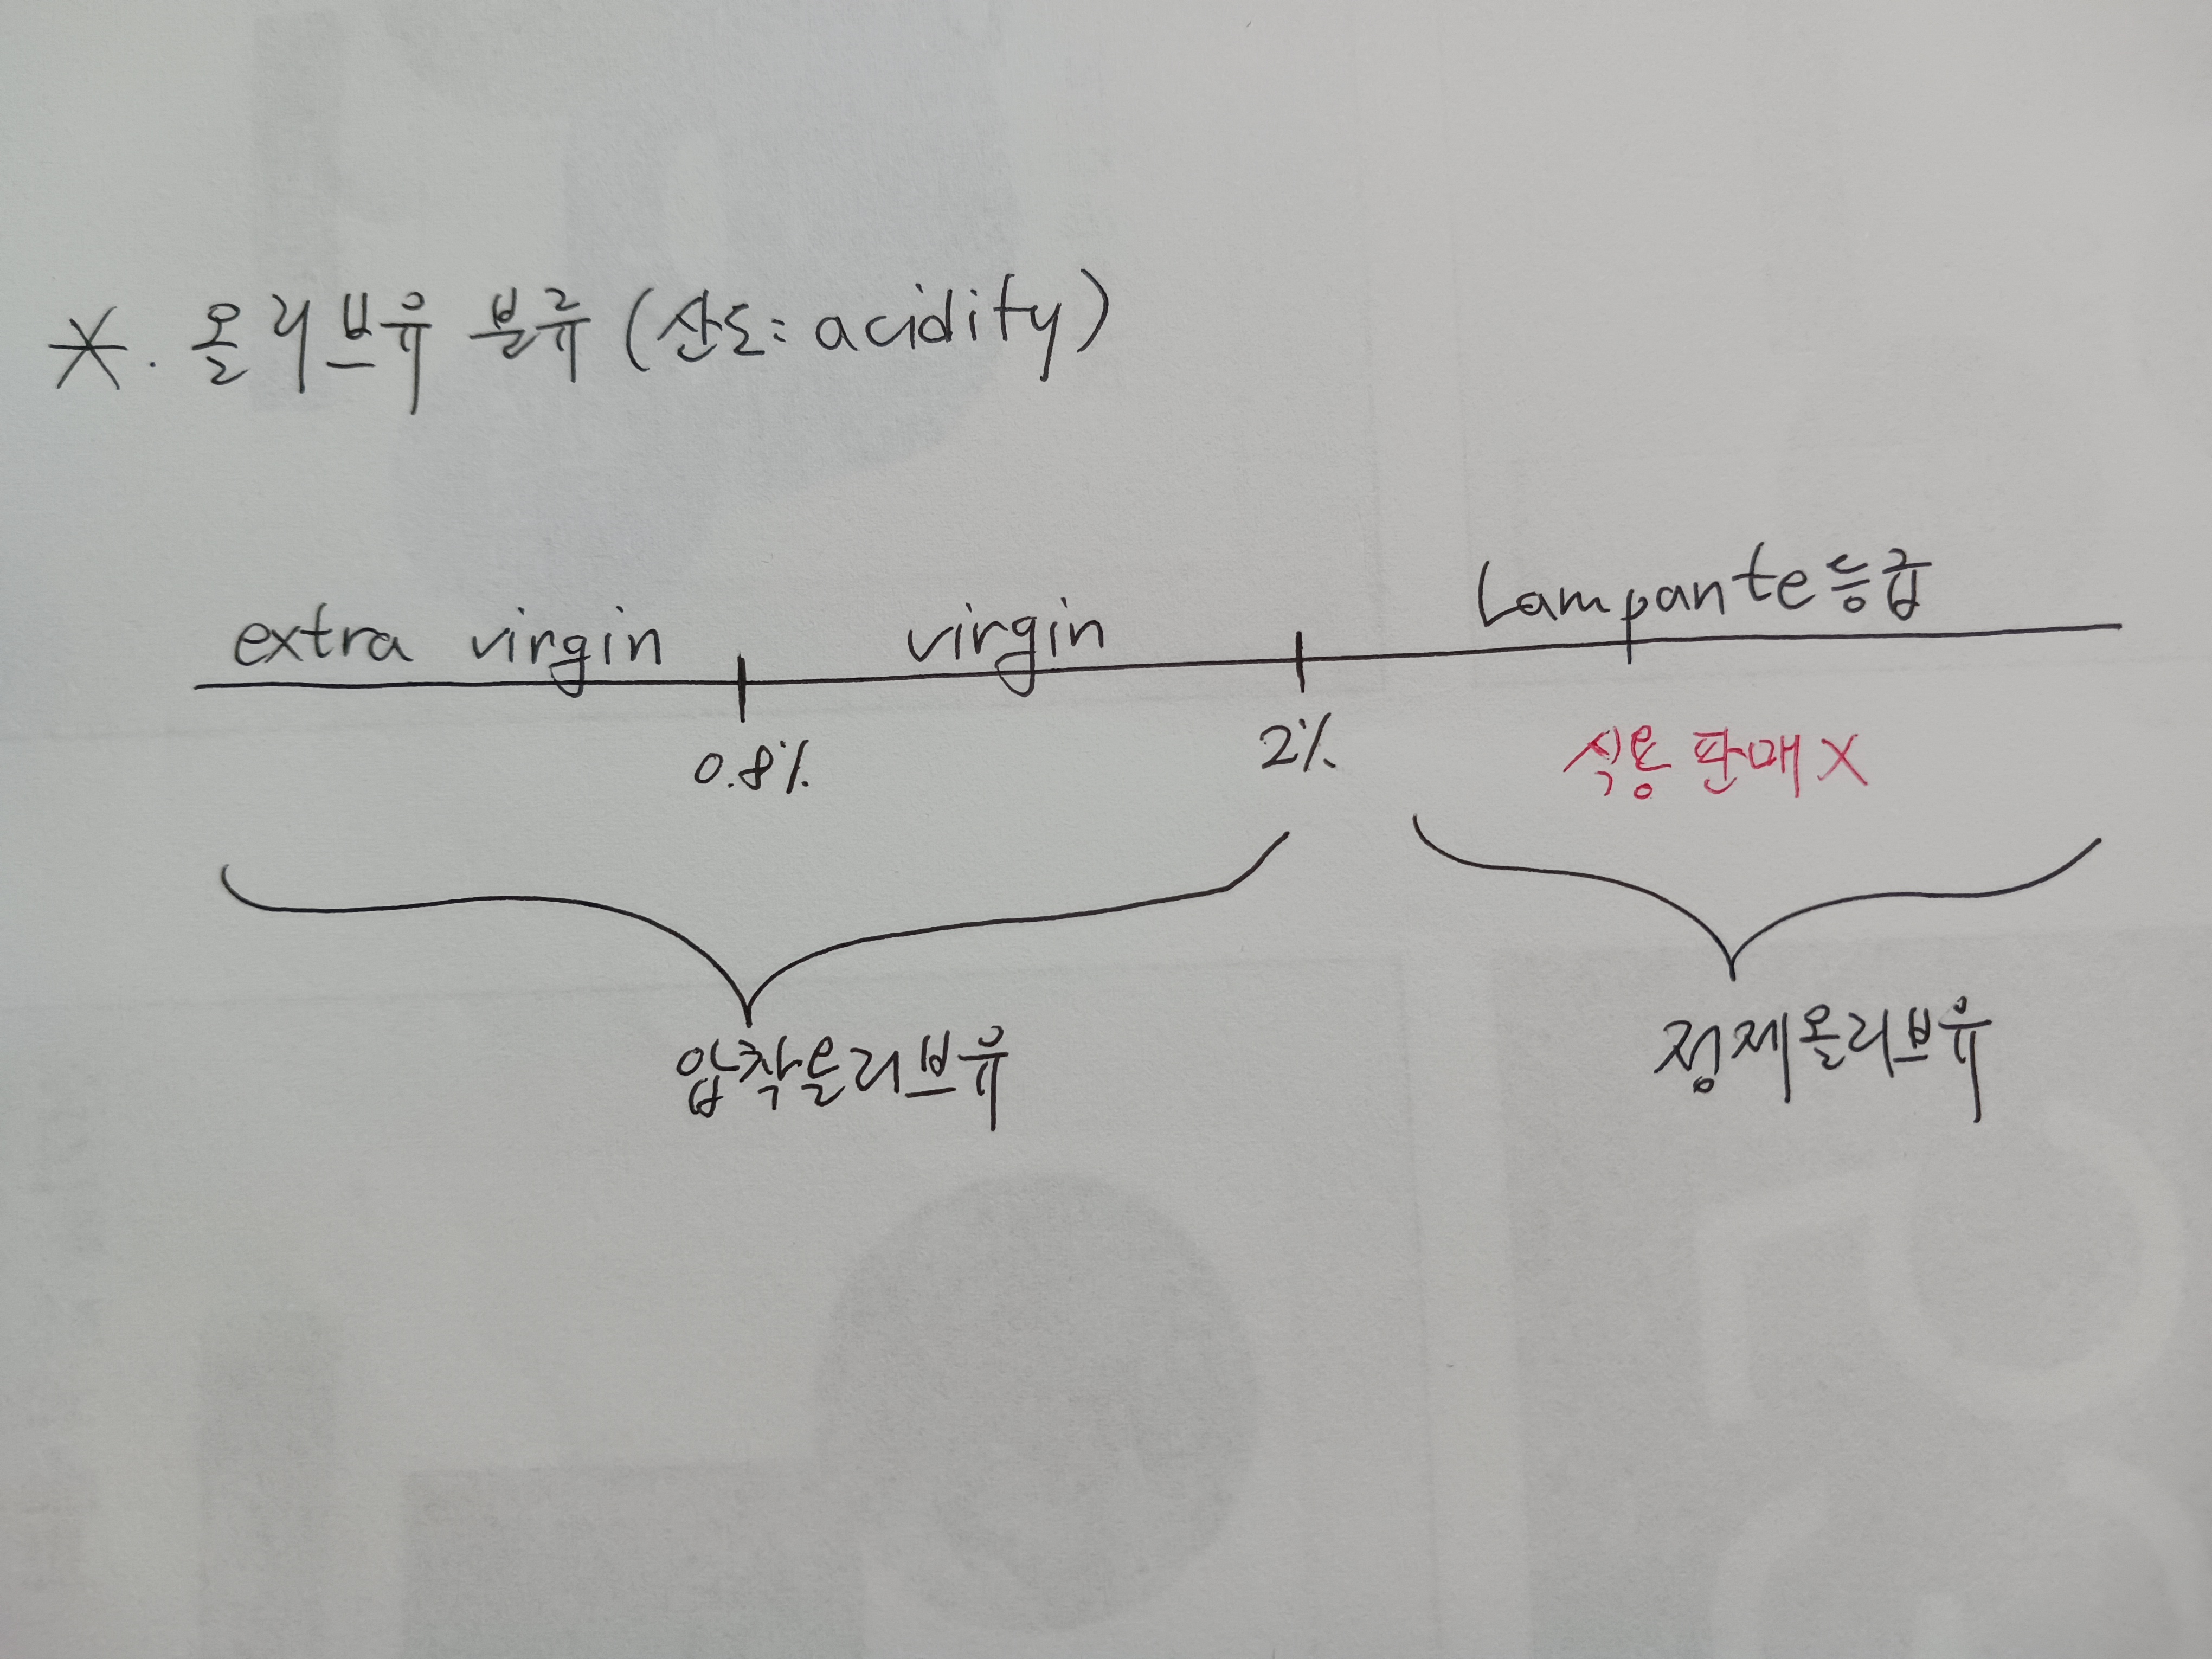 *. 올리브유 분류 (산도: acidity)
extra virgin virgin Lampante등급
0.8% 2% 식용 판매 X
압착올리브유 정제올리브유